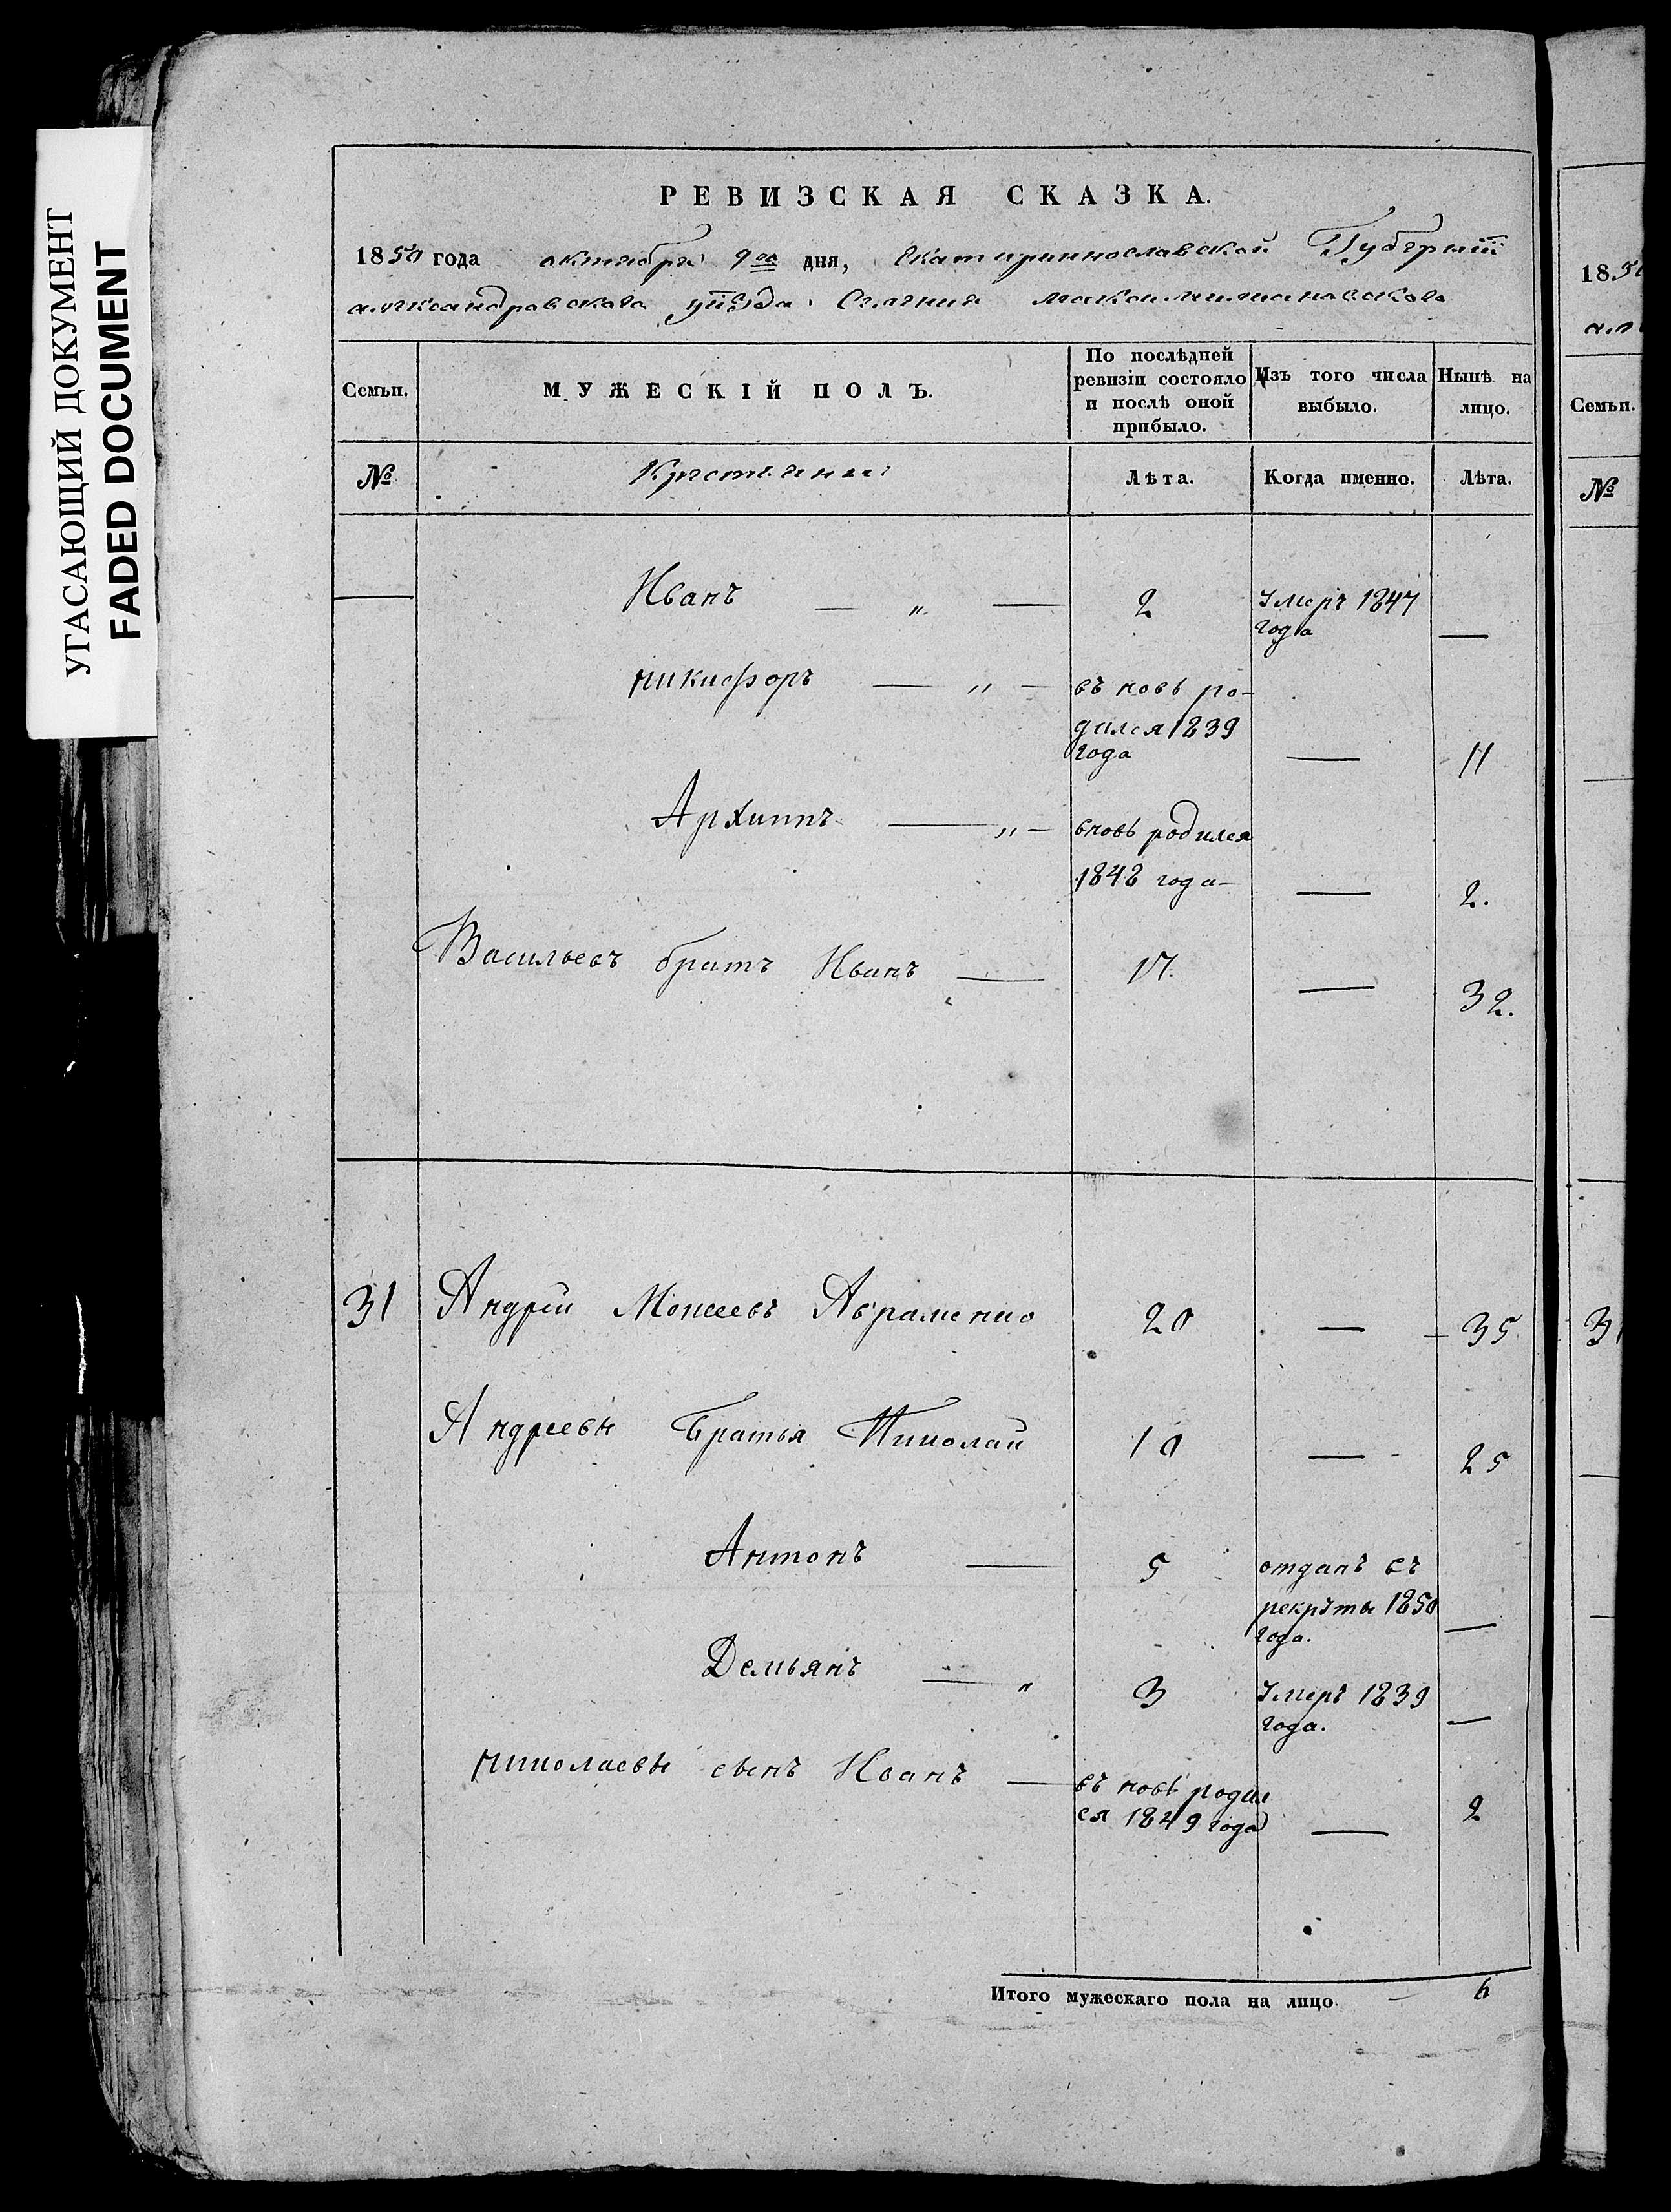 УГАСАЮЩИЙ ДОКУМЕНТ
FADED DOCUMENT
РЕВИЗСКАЯ СКАЗКА.
1850 года октября 9го дня, Екатериннославской Губернии
александровского уѣзда Селения
Семьи. МУЖЕСКІЙ ПОЛЪ. По послѣдней ревизіи состояло и послѣ оной прибыло. Изъ того числа выбыло. Нынѣ на лицо.
№ Крестьяни Лѣта. Когда именно. Лѣта.
Иванъ — „ — 2 Умеръ 1847
года —
никифоръ — „ — въ новь ро-
дился 1839
года — 11
Архипъ — „ — вновь родился
1848 года — — 2.
Васильевъ братъ Иванъ — 17. — 32.
31 Андрей Моисеевъ Авраменко 20 — 35
Андреевы Братья Николай 10 — 25
Антонъ — 5 отданъ въ
рекруты 1850
года. —
Демьянъ — „ 3 Умеръ 1839
года. —
николаевы сынъ Иванъ — въ новь родил
ся 1849 года — 2
Итого мужескаго пола на лицо. — 6
1850
ал
Семьи.
№
31